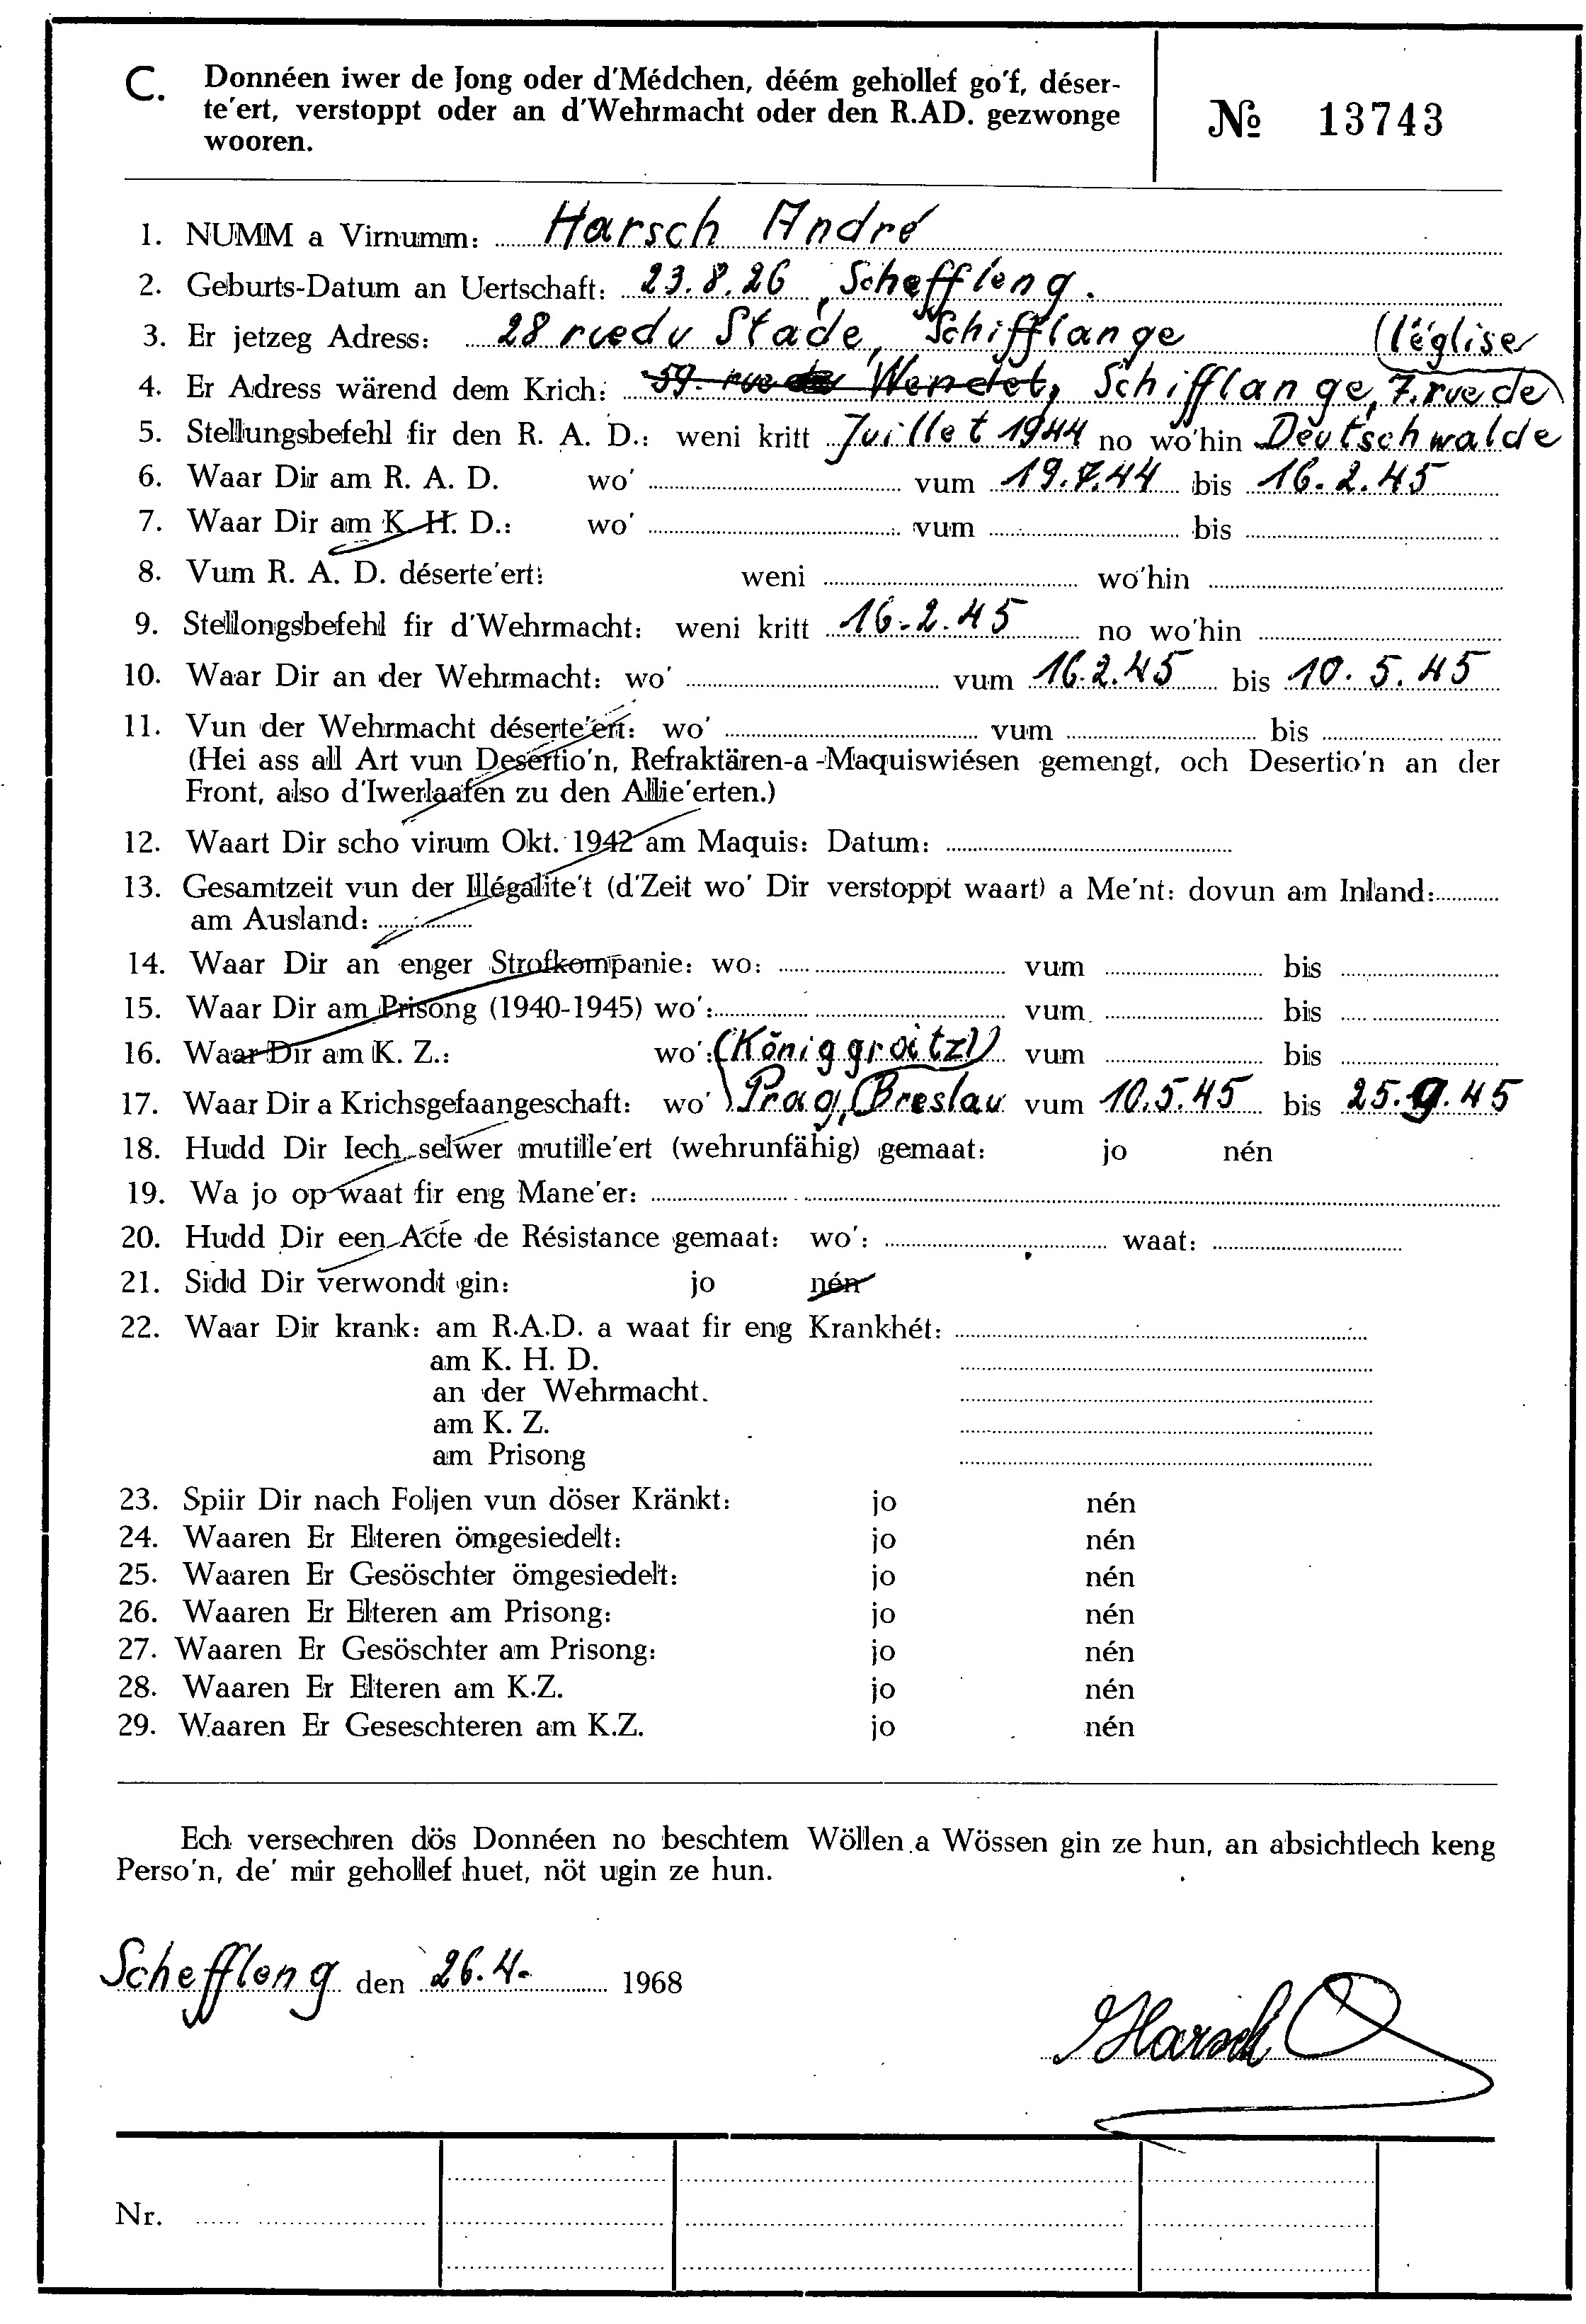 C. Donnéen iwer de Jong oder d'Médchen, déém gehollef go'f, déser-
te'ert, verstoppt oder an d'Wehrmacht oder den R.AD. gezwonge
wooren.
№ 13743
1. NUMM a Virnumm: Harsch André
2. Geburts-Datum an Uertschaft: 23.8.26, Scheffleng.
3. Er jetzeg Adress: 28 rue du Stade, Schifflange (l'église
4. Er Adress wärend dem Krich: 59. rue de Wendel, Schifflange, 7. rue de
5. Stellungsbefehl fir den R. A. D.: weni kritt Juillet 1944 no wo'hin Deutschwalde
6. Waar Dir am R. A. D. wo' vum 19.7.44 bis 16.2.45
7. Waar Dir am K. H. D.: wo' vum bis
8. Vum R. A. D. déserte'ert: weni wo'hin
9. Stellongsbefehl fir d'Wehrmacht: weni kritt 16.2.45 no wo'hin
10. Waar Dir an der Wehrmacht: wo' vum 16.2.45 bis 10.5.45
11. Vun der Wehrmacht déserte'ert: wo' vum bis
(Hei ass all Art vun Desertio'n, Refraktären-a-Maquiswiésen gemengt, och Desertio'n an der
Front, also d'Iwerlaafen zu den Allie'erten.)
12. Waart Dir scho virum Okt. 1942 am Maquis: Datum:
13. Gesamtzeit vun der Illégalite't (d'Zeit wo' Dir verstoppt waart) a Me'nt: dovun am Inland:
am Ausland:
14. Waar Dir an enger Strofkompanie: wo: vum bis
15. Waar Dir am Prisong (1940-1945) wo': vum bis
16. Waar Dir am K. Z.: wo': (Königgrätz) vum bis
17. Waar Dir a Krichsgefaangeschaft: wo' Prag, Breslau vum 10.5.45 bis 25.9.45
18. Hudd Dir Iech selwer mutille'ert (wehrunfähig) gemaat: jo nén
19. Wa jo op waat fir eng Mane'er:
20. Hudd Dir een Acte de Résistance gemaat: wo': waat:
21. Sidd Dir verwondt gin: jo nén
22. Waar Dir krank: am R.A.D. a waat fir eng Krankhét:
am K. H. D.
an der Wehrmacht.
am K. Z.
am Prisong
23. Spiir Dir nach Foljen vun döser Kränkt: jo nén
24. Waaren Er Elteren ömgesiedelt: jo nén
25. Waaren Er Gesöschter ömgesiedelt: jo nén
26. Waaren Er Elteren am Prisong: jo nén
27. Waaren Er Gesöschter am Prisong: jo nén
28. Waaren Er Elteren am K.Z. jo nén
29. Waaren Er Geseschteren am K.Z. jo nén
Ech versechren dös Donnéen no beschtem Wöllen a Wössen gin ze hun, an absichtlech keng
Perso'n, de' mir gehollef huet, nöt ugin ze hun.
Scheffleng den 26.4. 1968
Harsch
Nr.